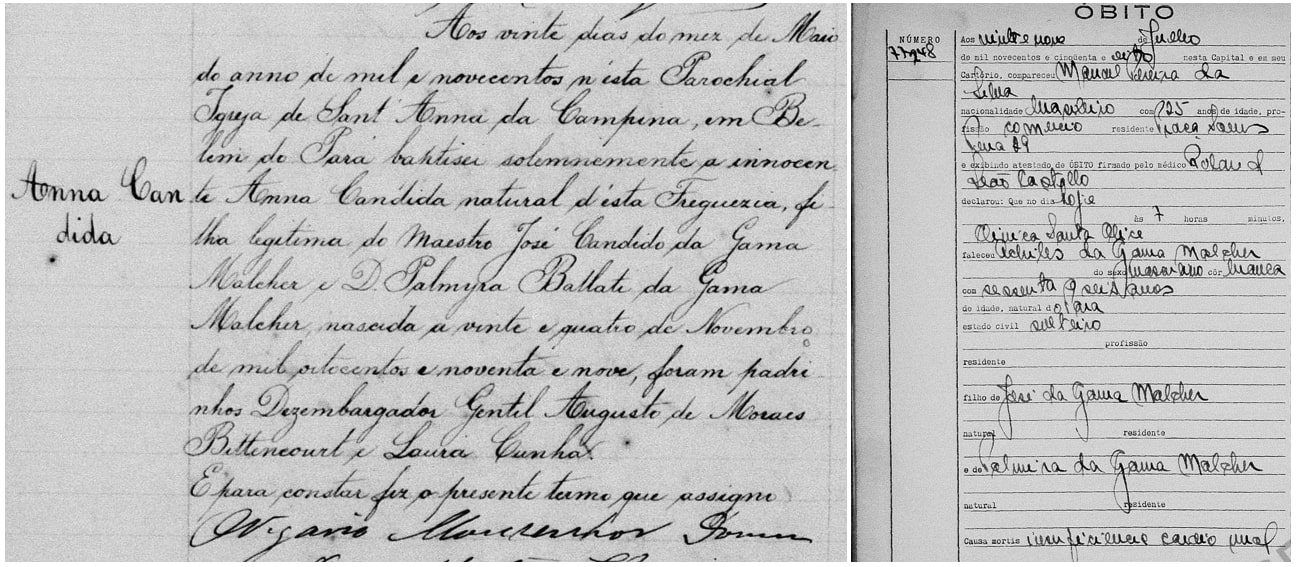 Aos vinte dias do mez de Maio
do anno de mil e novecentos n'ésta Parochial
Igreja de Sant'Anna da Campina, em Be-
lem do Pará baptisei solemnemente a innocen
Anna Can
dida
te Anna Candida natural d'ésta Freguezia, fi-
lha legitima do Maestro José Candido da Gama
Malcher e D. Palmyra Battati da Gama
Malcher, nascida a vinte e quatro de Novembro
de mil oitocentos e noventa e nove, foram padri
nhos Dezembargador Gentil Augusto de Moraes
Bittencourt e Laura Cunha.
E para constar fiz o presente termo que assigni
Vigario Monsenhor
ÓBITO
NÚMERO
77248
Aos vinte e nove de Julho
de mil novecentos e cinqüenta e oito nesta Capital e em seu
Cartório, compareceu Manuel Pereira da
Silva
nacionalidade brasileiro com 25 anos de idade, pro-
fissão comercio residente Praça Saens
Pena 29
e exibindo atestado de ÓBITO firmado pelo médico Roland
João Castello
declarou: Que no dia hoje
às 7 horas minutos,
Clinica Santa Alice
faleceu Achiles da Gama Malcher
do sexo masculino côr branca
com sessenta e seis anos
de idade, natural do Pará
estado civil solteiro
profissão
residente
filho de José da Gama Malcher
natural residente
e de Palmira da Gama Malcher
natural residente
Causa mortis insuficiencia cardio renal